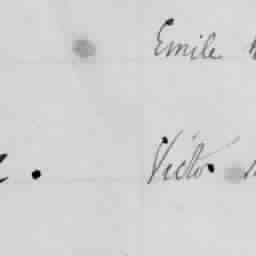 Emile
Victor